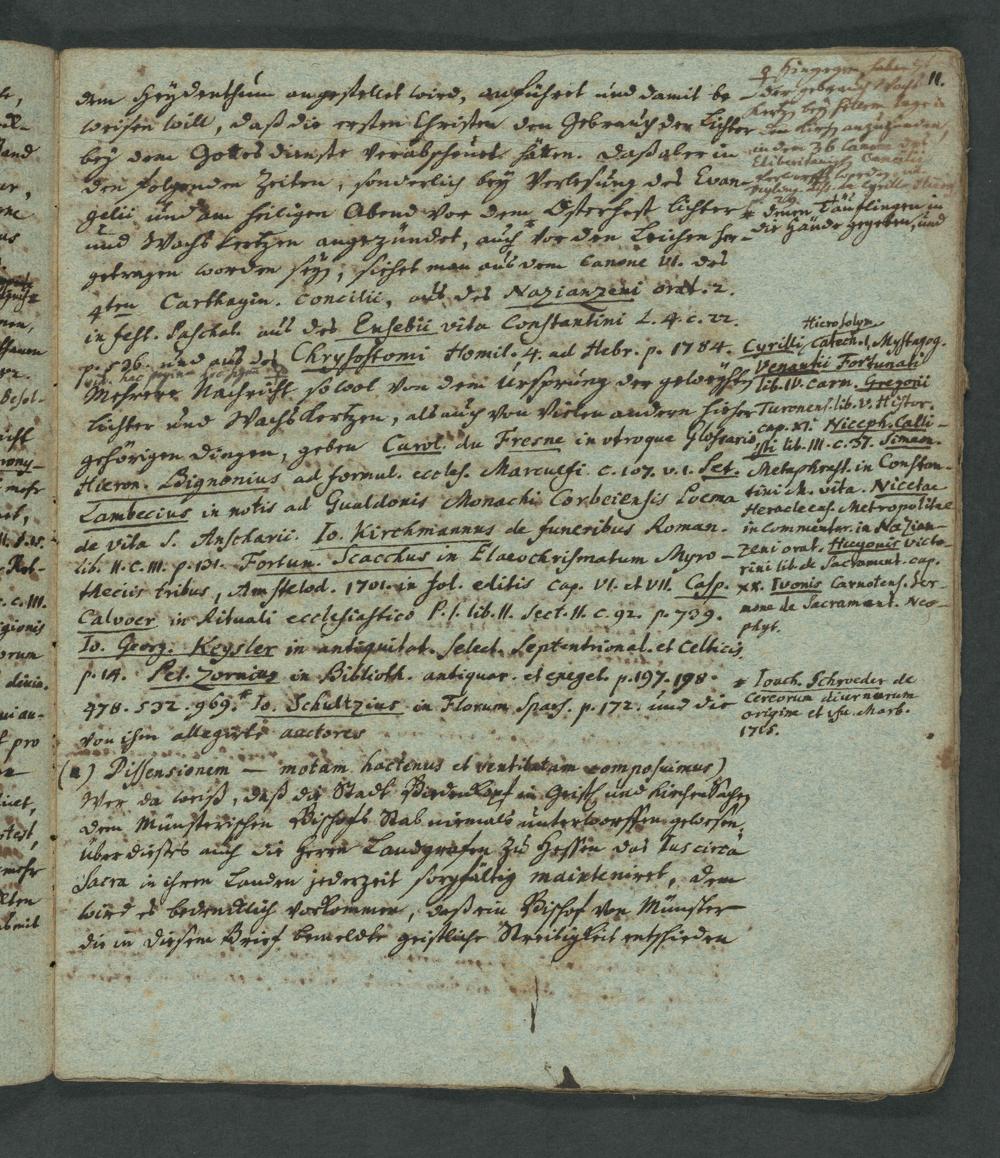 11.
dem Heydenthum angestellet wird, anführet und damit be-
weisen will, daß die ersten Christen den Gebrauch der Lichter
bey dem Gottesdienste verabscheuet hätten. Daß aber in
den folgenden Zeiten, sonderlich bey Verlesung des Evan-
gelii und am heiligen Abend vor dem Osterfest Lichter
und Wachskertzen angezündet, auch vor den Leichen her-
getragen worden seyn, siehet man aus dem Canone VI. des
4ten Carthagin. Concilii, aus des Nazianzeni orat. 2.
in fest. Paschal. aus des Eusebii vita Constantini L. 4. c. 22.
p. 536. und aus des Chrysostomi Homil. 4. ad Hebr. p. 1784.
Mehrere Nachricht sowol von dem Ursprung der geweyhten
Lichter und Wachskertzen, als auch von vielen andern hieher
gehörigen Dingen, geben Carol. du Fresne in utroque Glossario
Hieron. Bignonius ad formul. eccles. Marculfi. c. 107. v. 1. Pet.
Lambecius in notis ad Gualdonis Monachi Corbeiensis Poema
de vita S. Anscharii. Io. Kirchmannus de funeribus Roman.
lib. II. c. III. p. 131. Fortun. Scacchus in Elaeochrismatum Myro-
theciis tribus, Amstelod. 1701. in fol. editis cap. VI. et VII. Casp.
Calvoer in Rituali ecclesiastico P. I. lib. II. Sect. II. c. 92. p. 739.
Io. Georg. Keysler in antiquitat. select. Septentrional. et Celticis
p. 14. Pet. Zornius in Biblioth. antiquar. et exeget. p. 197. 198.
478. 532. 969. * Io. Schultzius in Florum Spars. p. 172. und die
von ihm allegirte auctores
(n) Dissensionem — motam hactenus et ventilatam composuimus)
Wer da weiß, daß die Stadt Biedenkopf in Geistl und Kirchen Sachen
dem Münsterischen Bischofs Stab niemals unterworffen gewesen,
über dieses auch die Herrn Landgrafen zu Hessen das Ius circa
Sacra in ihren Landen jederzeit sorgfältig mainteniret, dem
wird es bedencklich vorkommen, daß ein Bischof von Münster
die in diesem Brief bemeldte geistliche Streitigkeit entschieden
Hingegen haben
der gebrauch Wachs
Kertzen bey hellem tage in
den Kirch anzuzünden,
in dem 36 Canone des
Eliberitanisch Concilii
denen Täuflingen in
die Hände gegeben, und
Hierosolym
Cyrilli Catech. I. Mystagog.
Venantii Fortunati
lib. IV. carm. Gregorii
Turonens. lib. V. Histor.
cap. XI. Niceph. Calli-
sti lib. III. c. 37. Simeon.
Metaphrast. in Constan-
tini M. vita. Nicetae
Heracleens. Metropolitae
in commentar. in Nazian-
zeni orat. Hugonis Victo-
rini lib. de Sacrament. cap.
XX. Ivonis Carnotens. Ser-
mone de Sacrament. Neo-
phyt.
* Ioach. Schroeder de
Cereorum diurnorum
origine et usu. Marb.
1715.